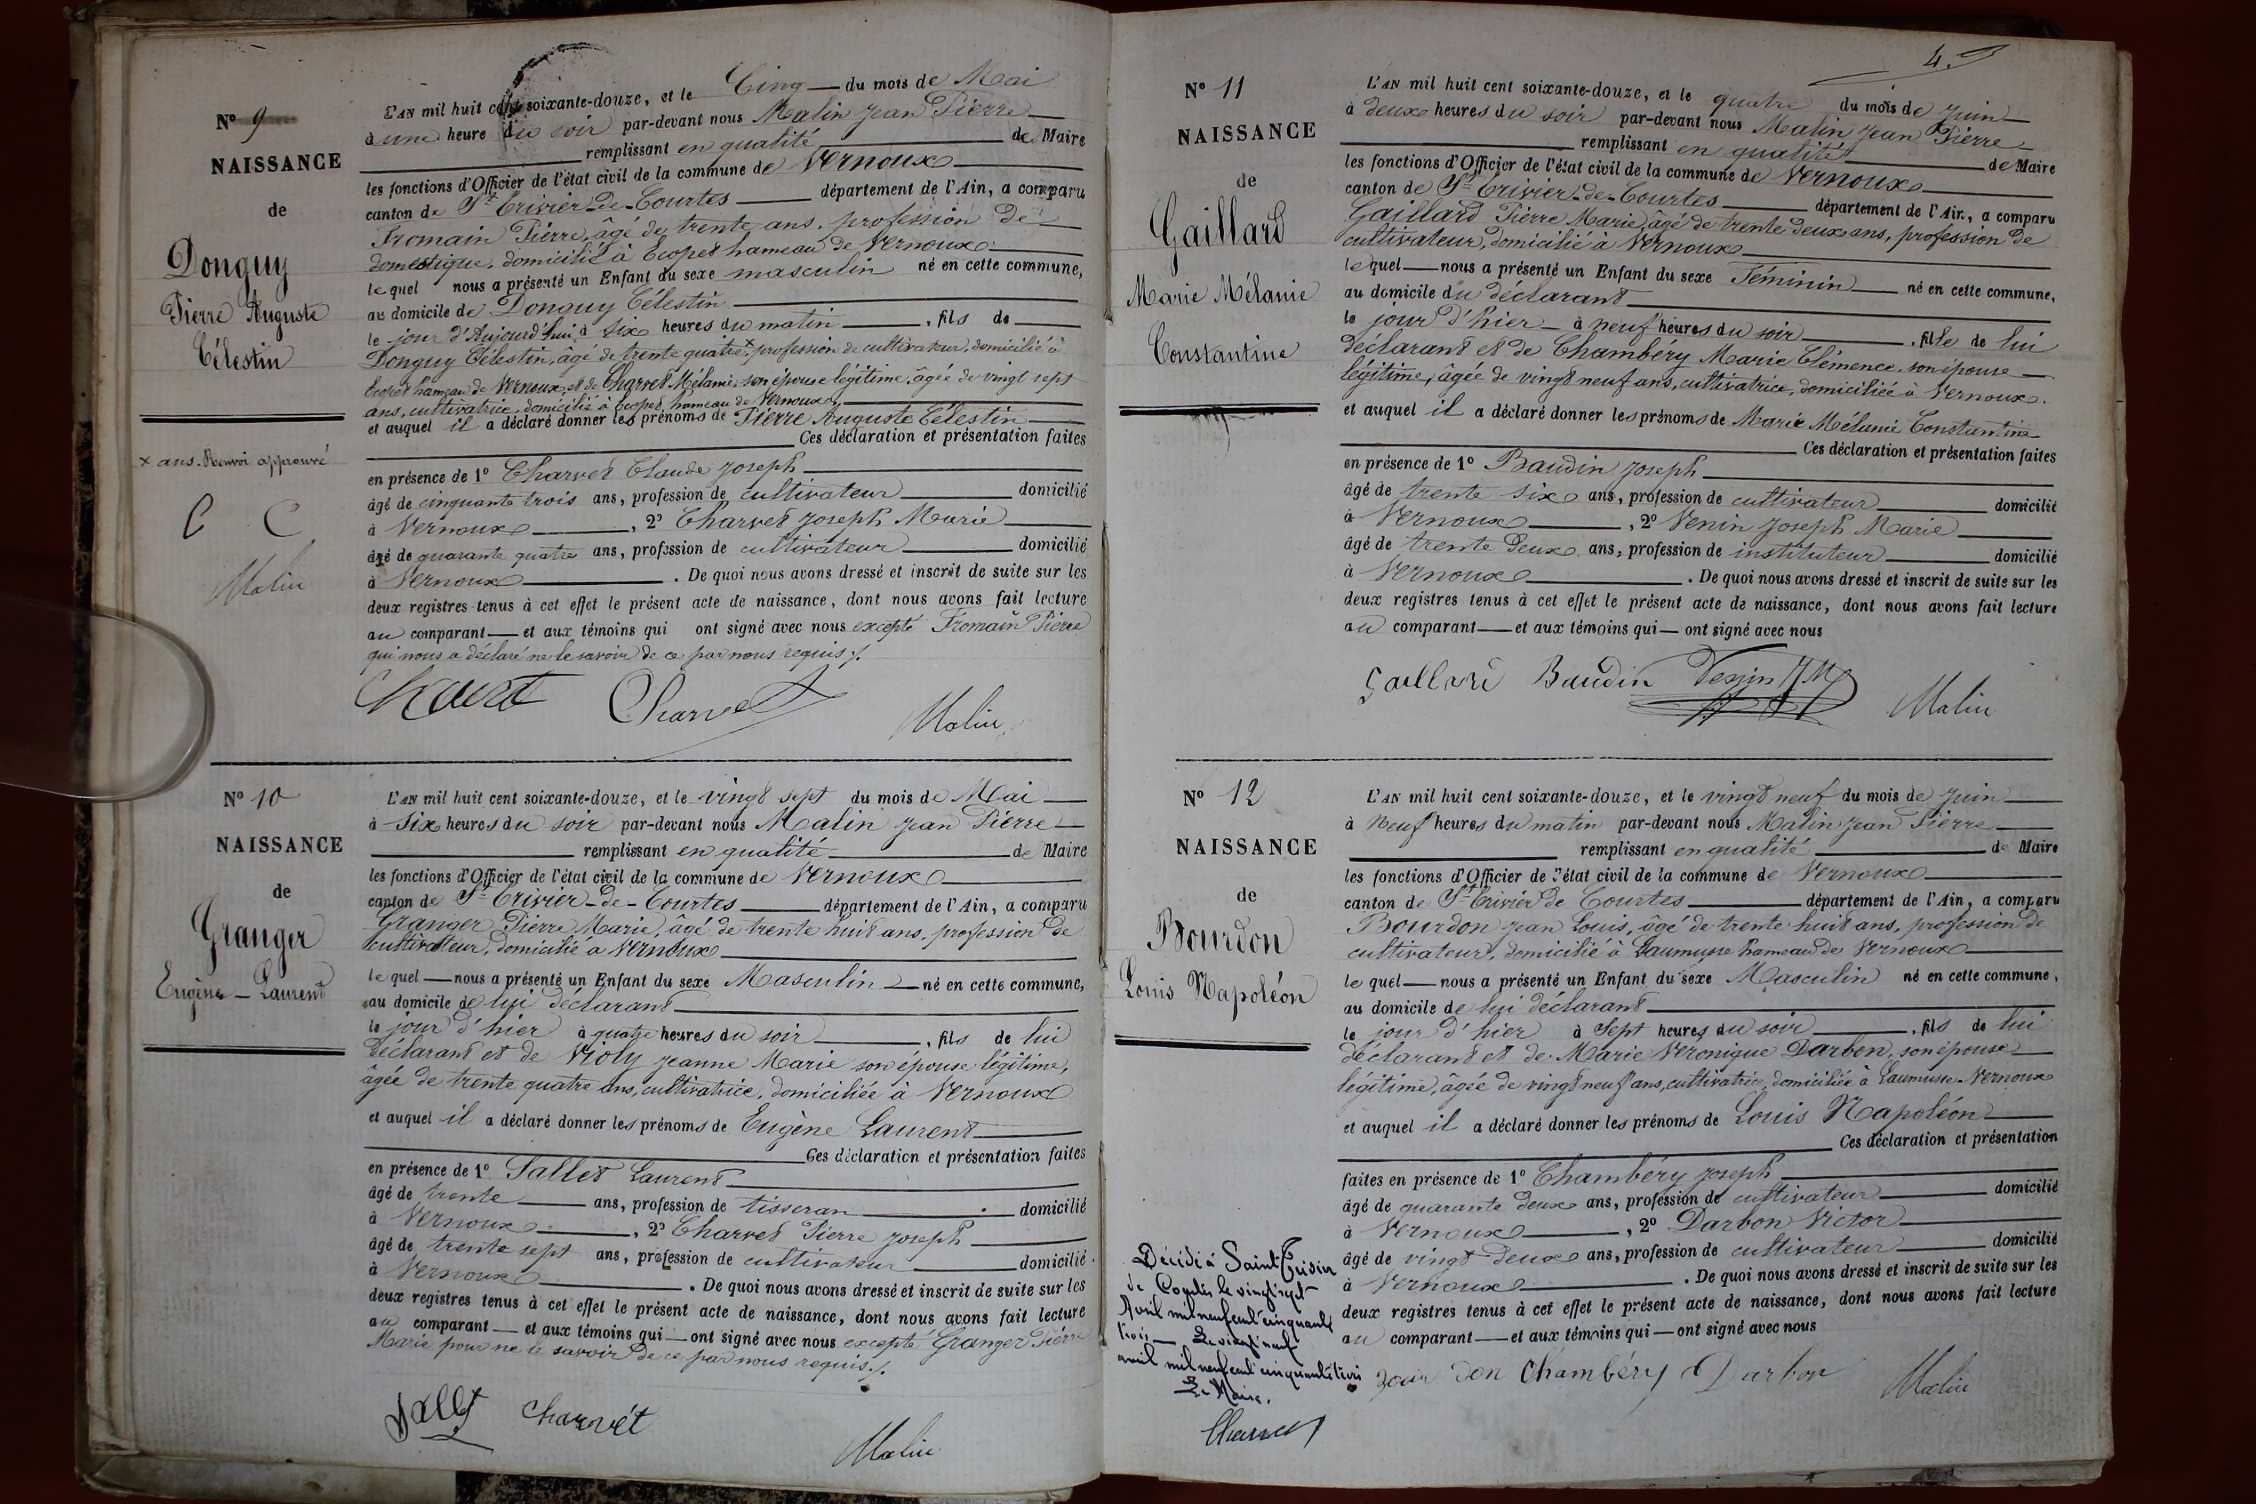 Nº 9
NAISSANCE
de
Donguy
Pierre Auguste
Célestin
L'AN mil huit cent soixante-douze, et le Cinq du mois de Mai
à une heure du soir par-devant nous Malin Jean Pierre
remplissant en qualité de Maire
les fonctions d'Officier de l'état civil de la commune de Vernoux
canton de St Trivier-de-Courtes département de l'Ain, a comparu
Fromain Pierre, âgé de trente ans, profession de
domestique, domicilié à Ecopet hameau de Vernoux
lequel nous a présenté un Enfant du sexe masculin né en cette commune,
au domicile de Donguy Célestin
le jour d'Aujourd'hui à six heures du matin, fils de
Donguy Célestin, âgé de trente quatre x, profession de cultivateur, domicilié à
Ecopet hameau de Vernoux, et de Charvet Mélanie, son épouse légitime, âgée de vingt sept
ans, cultivatrice, domicilié à Ecopet hameau de Vernoux,
et auquel il a déclaré donner les prénoms de Pierre Auguste Célestin
Ces déclaration et présentation faites
x ans. Renvoi approuvé
C C
Malin
en présence de 1º Charvet Claude Joseph
âgé de cinquante trois ans, profession de cultivateur domicilié
à Vernoux, 2º Charvet Joseph Marie
âgé de quarante quatre ans, profession de cultivateur domicilié
à Vernoux. De quoi nous avons dressé et inscrit de suite sur les
deux registres tenus à cet effet le présent acte de naissance, dont nous avons fait lecture
au comparant et aux témoins qui ont signé avec nous excepté Fromain Pierre
qui nous a déclaré ne le savoir de ce par nous requis ./.
Charvet Charvet Malin
Nº 10
NAISSANCE
de
Granger
Eugène-Laurent
L'AN mil huit cent soixante-douze, et le vingt sept du mois de Mai
à Six heures du soir par-devant nous Malin Jean Pierre
remplissant en qualité de Maire
les fonctions d'Officier de l'état civil de la commune de Vernoux
canton de St Trivier-de-Courtes département de l'Ain, a comparu
Granger Pierre Marie, âgé de trente huit ans, profession de
cultivateur, domicilié à Vernoux
lequel nous a présenté un Enfant du sexe Masculin né en cette commune,
au domicile de lui déclarant
le jour d'hier à quatre heures du soir, fils de lui
déclarant et de Violy Jeanne Marie son épouse légitime,
âgée de trente quatre ans, cultivatrice, domiciliée à Vernoux
et auquel il a déclaré donner les prénoms de Eugène Laurent
Ces déclaration et présentation faites
en présence de 1º Sallet Laurent
âgé de trente ans, profession de tisseran domicilié
à Vernoux, 2º Charvet Pierre Joseph
âgé de trente sept ans, profession de cultivateur domicilié
à Vernoux. De quoi nous avons dressé et inscrit de suite sur les
deux registres tenus à cet effet le présent acte de naissance, dont nous avons fait lecture
au comparant et aux témoins qui ont signé avec nous excepté Granger Pierre
Marie pour ne le savoir de ce par nous requis ./.
Sallet Charvét Malin
4.
Nº 11
NAISSANCE
de
Gaillard
Marie Mélanie
Constantine
L'AN mil huit cent soixante-douze, et le quatre du mois de Juin
à deux heures du soir par-devant nous Malin Jean Pierre
remplissant en qualité de Maire
les fonctions d'Officier de l'état civil de la commune de Vernoux
canton de St Trivier-de-Courtes département de l'Ain, a comparu
Gaillard Pierre Marie, âgé de trente deux ans, profession de
cultivateur, domicilié à Vernoux
lequel nous a présenté un Enfant du sexe Féminin né en cette commune,
au domicile du déclarant
le jour d'hier à neuf heures du soir, fille de lui
déclarant et de Chambéry Marie Clémence, son épouse
légitime, âgée de vingt neuf ans, cultivatrice, domiciliée à Vernoux.
et auquel il a déclaré donner les prénoms de Marie Mélanie Constantine
Ces déclaration et présentation faites
en présence de 1º Baudin Joseph
âgé de trente six ans, profession de cultivateur domicilié
à Vernoux, 2º Venin Joseph Marie
âgé de trente deux ans, profession de instituteur domicilié
à Vernoux. De quoi nous avons dressé et inscrit de suite sur les
deux registres tenus à cet effet le présent acte de naissance, dont nous avons fait lecture
au comparant et aux témoins qui ont signé avec nous
Gaillard Baudin Venin JM Malin
Nº 12
NAISSANCE
de
Bourdon
Louis Napoléon
L'AN mil huit cent soixante-douze, et le vingt neuf du mois de Juin
à Neuf heures du matin par-devant nous Malin Jean Pierre
remplissant en qualité de Maire
les fonctions d'Officier de l'état civil de la commune de Vernoux
canton de St Trivier de Courtes département de l'Ain, a comparu
Bourdon Jean Louis, âgé de trente huit ans, profession de
cultivateur, domicilié à Laumusse hameau de Vernoux
lequel nous a présenté un Enfant du sexe Masculin né en cette commune,
au domicile de lui déclarant
le jour d'hier à Sept heures du soir, fils de lui
déclarant et de Marie Véronique Darbon, son épouse
légitime, âgée de vingt neuf ans, cultivatrice, domiciliée à Laumusse-Vernoux
et auquel il a déclaré donner les prénoms de Louis Napoléon
Ces déclaration et présentation
faites en présence de 1º Chambéry Joseph
âgé de quarante deux ans, profession de cultivateur domicilié
à Vernoux, 2º Darbon Victor
âgé de vingt-deux ans, profession de cultivateur domicilié
à Vernoux. De quoi nous avons dressé et inscrit de suite sur les
deux registres tenus à cet effet le présent acte de naissance, dont nous avons fait lecture
au comparant et aux témoins qui ont signé avec nous
Bourdon Chambéry Darbon Malin
Décédé à Saint-Trivier
de Courtes le vingt sept
Avril mil neuf cent cinquante
trois Le vingt neuf
avril mil neuf cent cinquante trois
Le Maire,